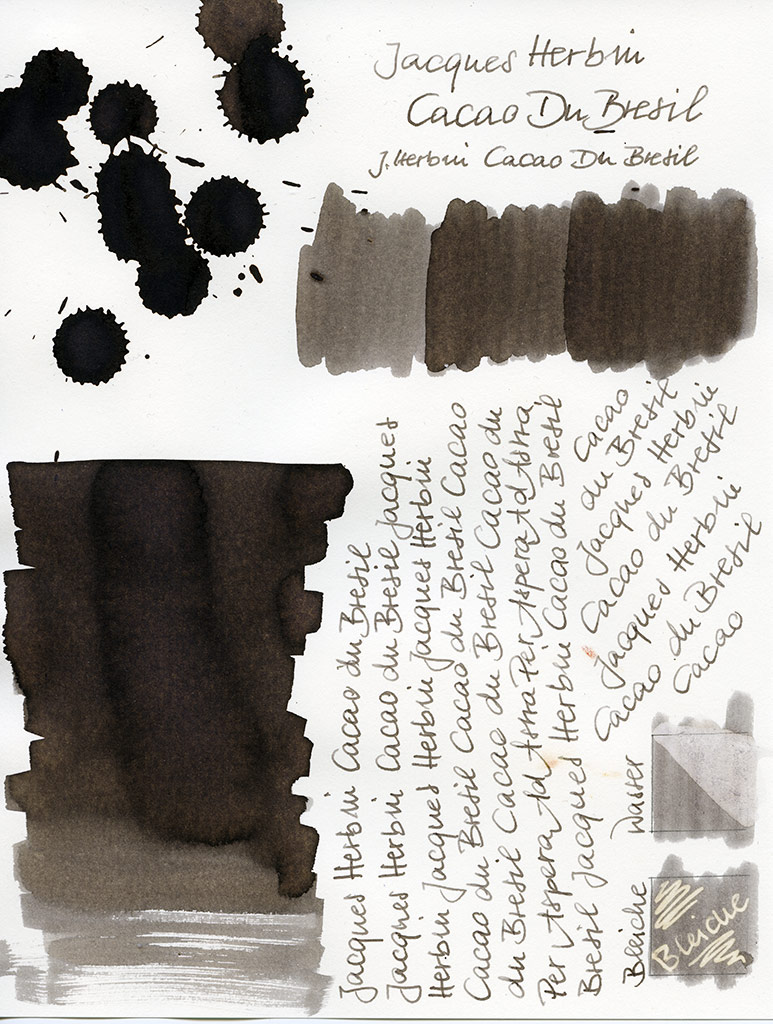 Jacques Herbin
Cacao Du Bresil
J. Herbin Cacao Du Bresil
Jacques Herbin Cacao du Bresil
Jacques Herbin Cacao du Bresil Jacques
Herbin Jacques Herbin Jacques Herbin
Cacao du Bresil Cacao du Bresil Cacao
du Bresil Cacao du Bresil Cacao du
Per Aspera Ad Astra Per Aspera Ad Astra
Bresil Jacques Herbin Cacao du Bresil
Cacao
du Bresil
Jacques Herbin
Cacao du Bresil
Jacques Herbin
Cacao du Bresil
Cacao
Wasser
Bleiche
Bleiche